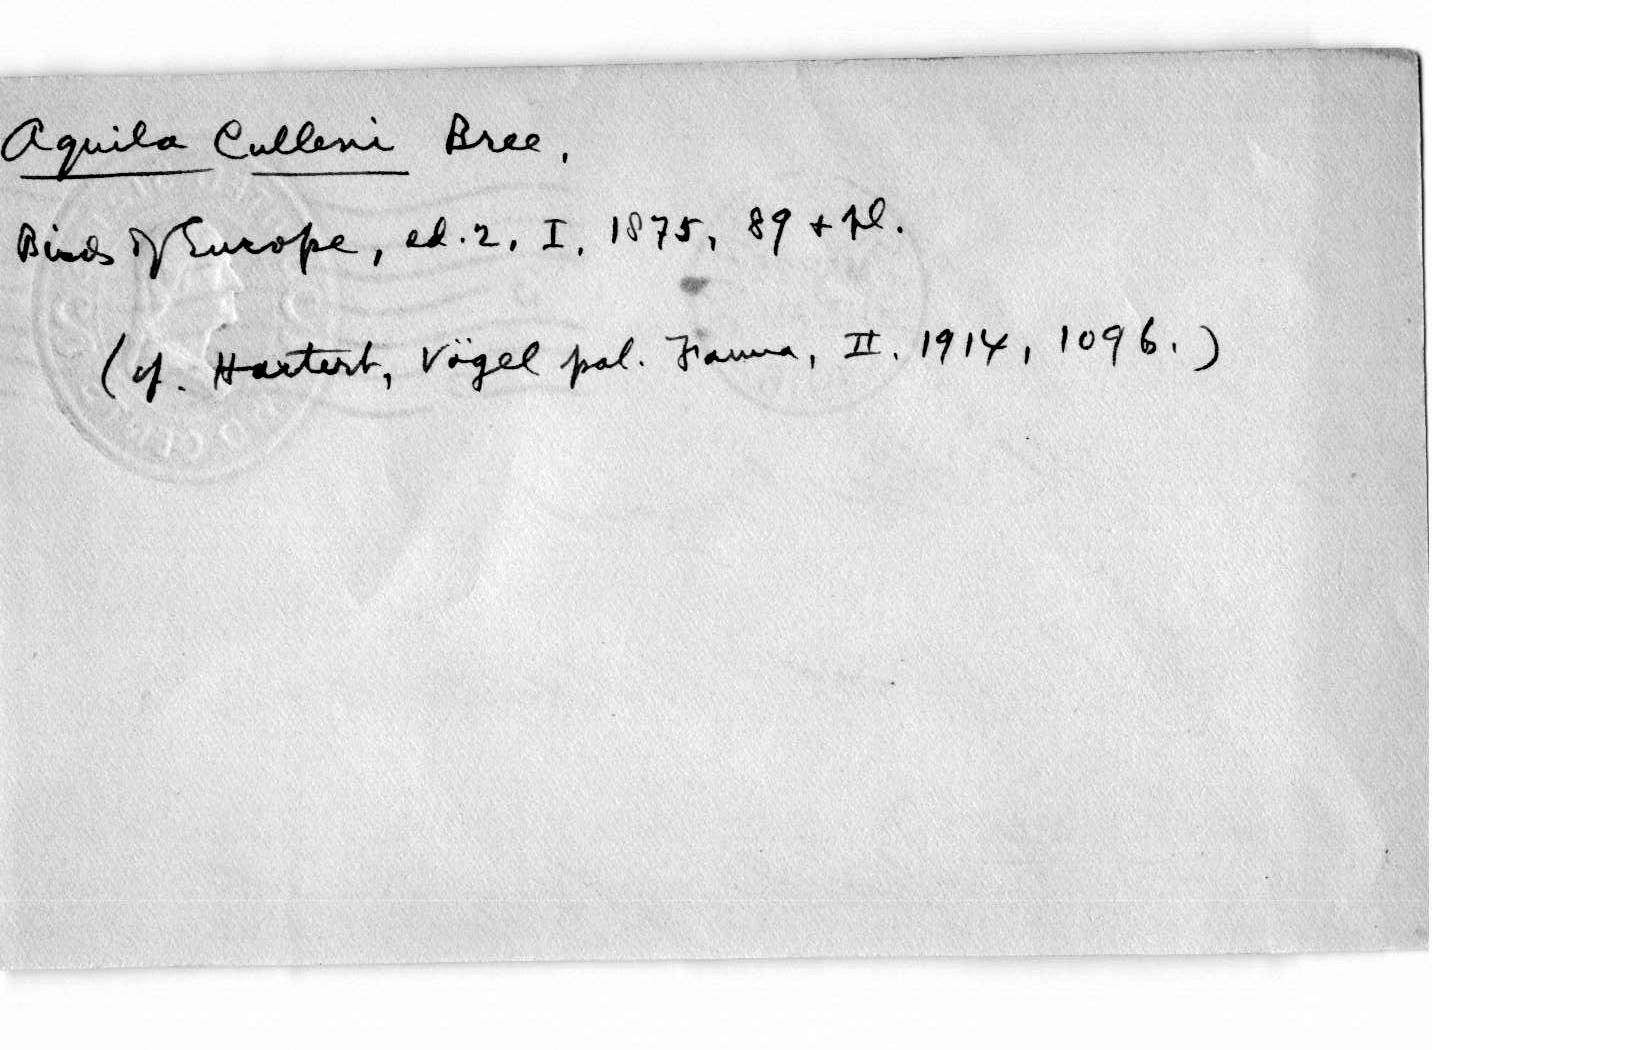 Aquila Culleni Bree.
Birds of Europe, ed. 2, I, 1875, 89 + pl.
(cf. Hartert, Vögel pal. Fauna, II. 1914, 1096.)